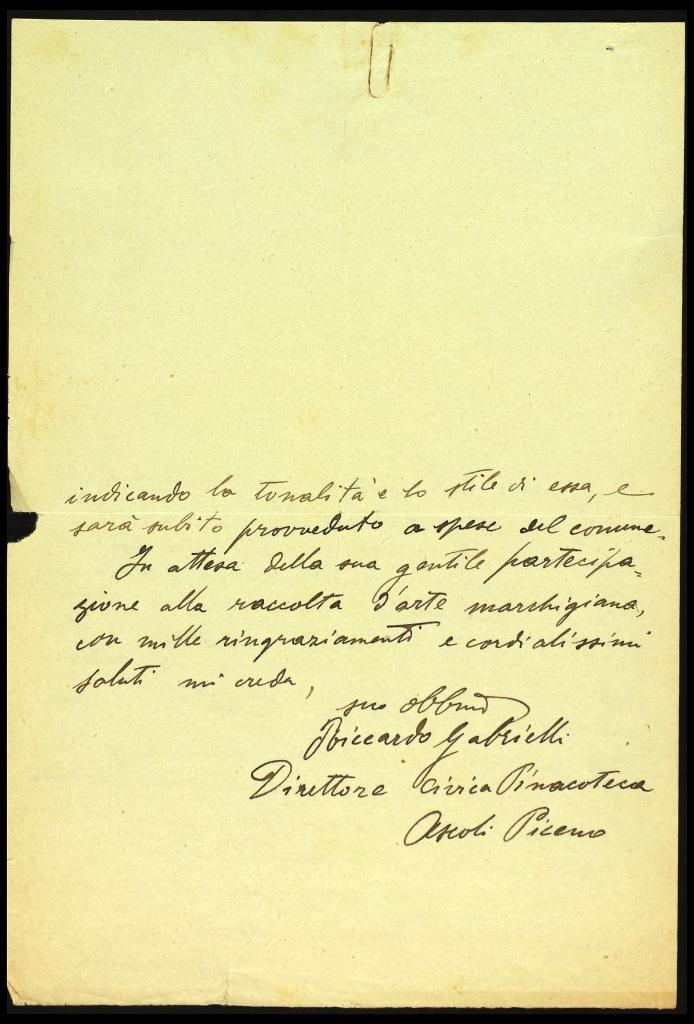 indicando la tonalità e lo stile di essa, e
sarà subito provveduto a spese del comune.
In attesa della sua gentile partecipa=
zione alla raccolta d'arte marchigiana,
con mille ringraziamenti e cordialissimi
saluti mi creda,
suo obbmo
Riccardo Gabrielli
Direttore Civica Pinacoteca
Ascoli Piceno